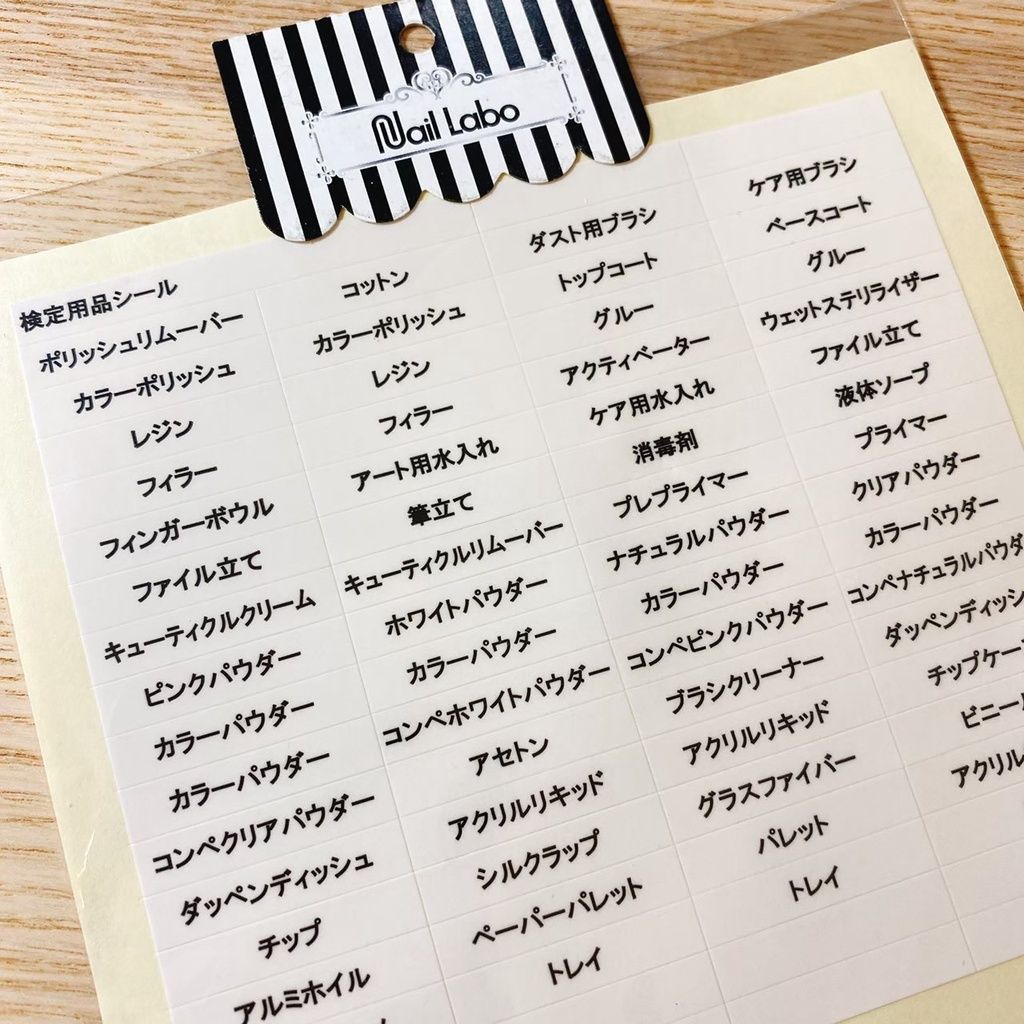 Nail Labo
検定用品シール
ポリッシュリムーバー コットン ダスト用ブラシ ケア用ブラシ
カラーポリッシュ カラーポリッシュ トップコート ベースコート
レジン レジン グルー グルー
フィラー フィラー アクティベーター ウェットステリライザー
フィンガーボウル アート用水入れ ケア用水入れ ファイル立て
ファイル立て 筆立て 消毒剤 液体ソープ
キューティクルクリーム キューティクルリムーバー プレプライマー プライマー
ピンクパウダー ホワイトパウダー ナチュラルパウダー クリアパウダー
カラーパウダー カラーパウダー カラーパウダー カラーパウダー
カラーパウダー コンペホワイトパウダー コンペピンクパウダー コンペナチュラルパウダ
コンペクリアパウダー アセトン ブラシクリーナー ダッペンディッシ
ダッペンディッシュ アクリルリキッド アクリルリキッド チップケー
チップ シルクラップ グラスファイバー ビニー
アルミホイル ペーパーパレット パレット アクリル
トレイ トレイ